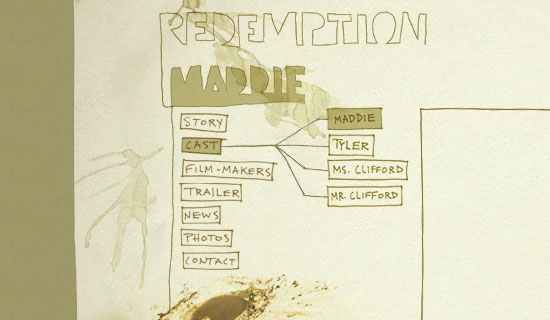 REDEMPTION
MADDIE
STORY
CAST
FILM-MAKERS
TRAILER
NEWS
PHOTOS
CONTACT
MADDIE
TYLER
MS. CLIFFORD
MR. CLIFFORD